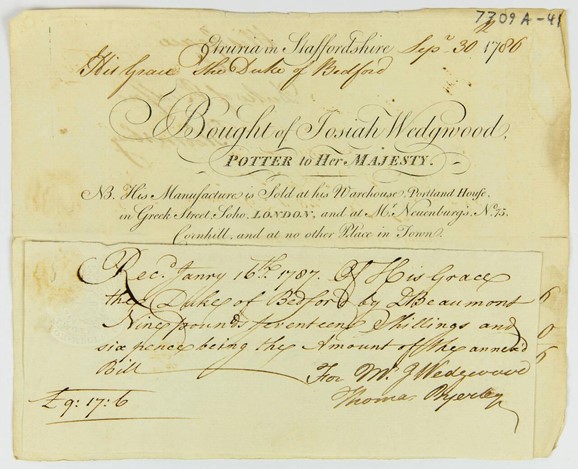 7309A-41
Etruria in Staffordshire Sepr. 30th 1786
His Grace The Duke of Bedford
Bought of Josiah Wedgwood,
POTTER to Her MAJESTY.
NB. His Manufacture is Sold at his Warehouse Portland House,
in Greek Street, Soho, LONDON, and at Mr. Neuenburg's No. 75.
Cornhill, and at no other Place in Town.
Recd. Janry 16th. 1787. Of His Grace
the Duke of Bedford by D Beaumont 6
Nine pounds seventeen Shillings and 0
six pence being the Amount of the annex'd 6
Bill
For Mr. J Wedgwood
£9:17:6
Thomas Byerley